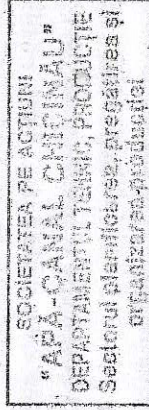 SOCIETATEA PE ACŢIUNI
"APĂ-CANAL CHIŞINĂU"
DEPARTAMENTUL TEHNIC, PRODUCŢIE
Sectorul planificarea, pregătirea şi
organizarea producţiei